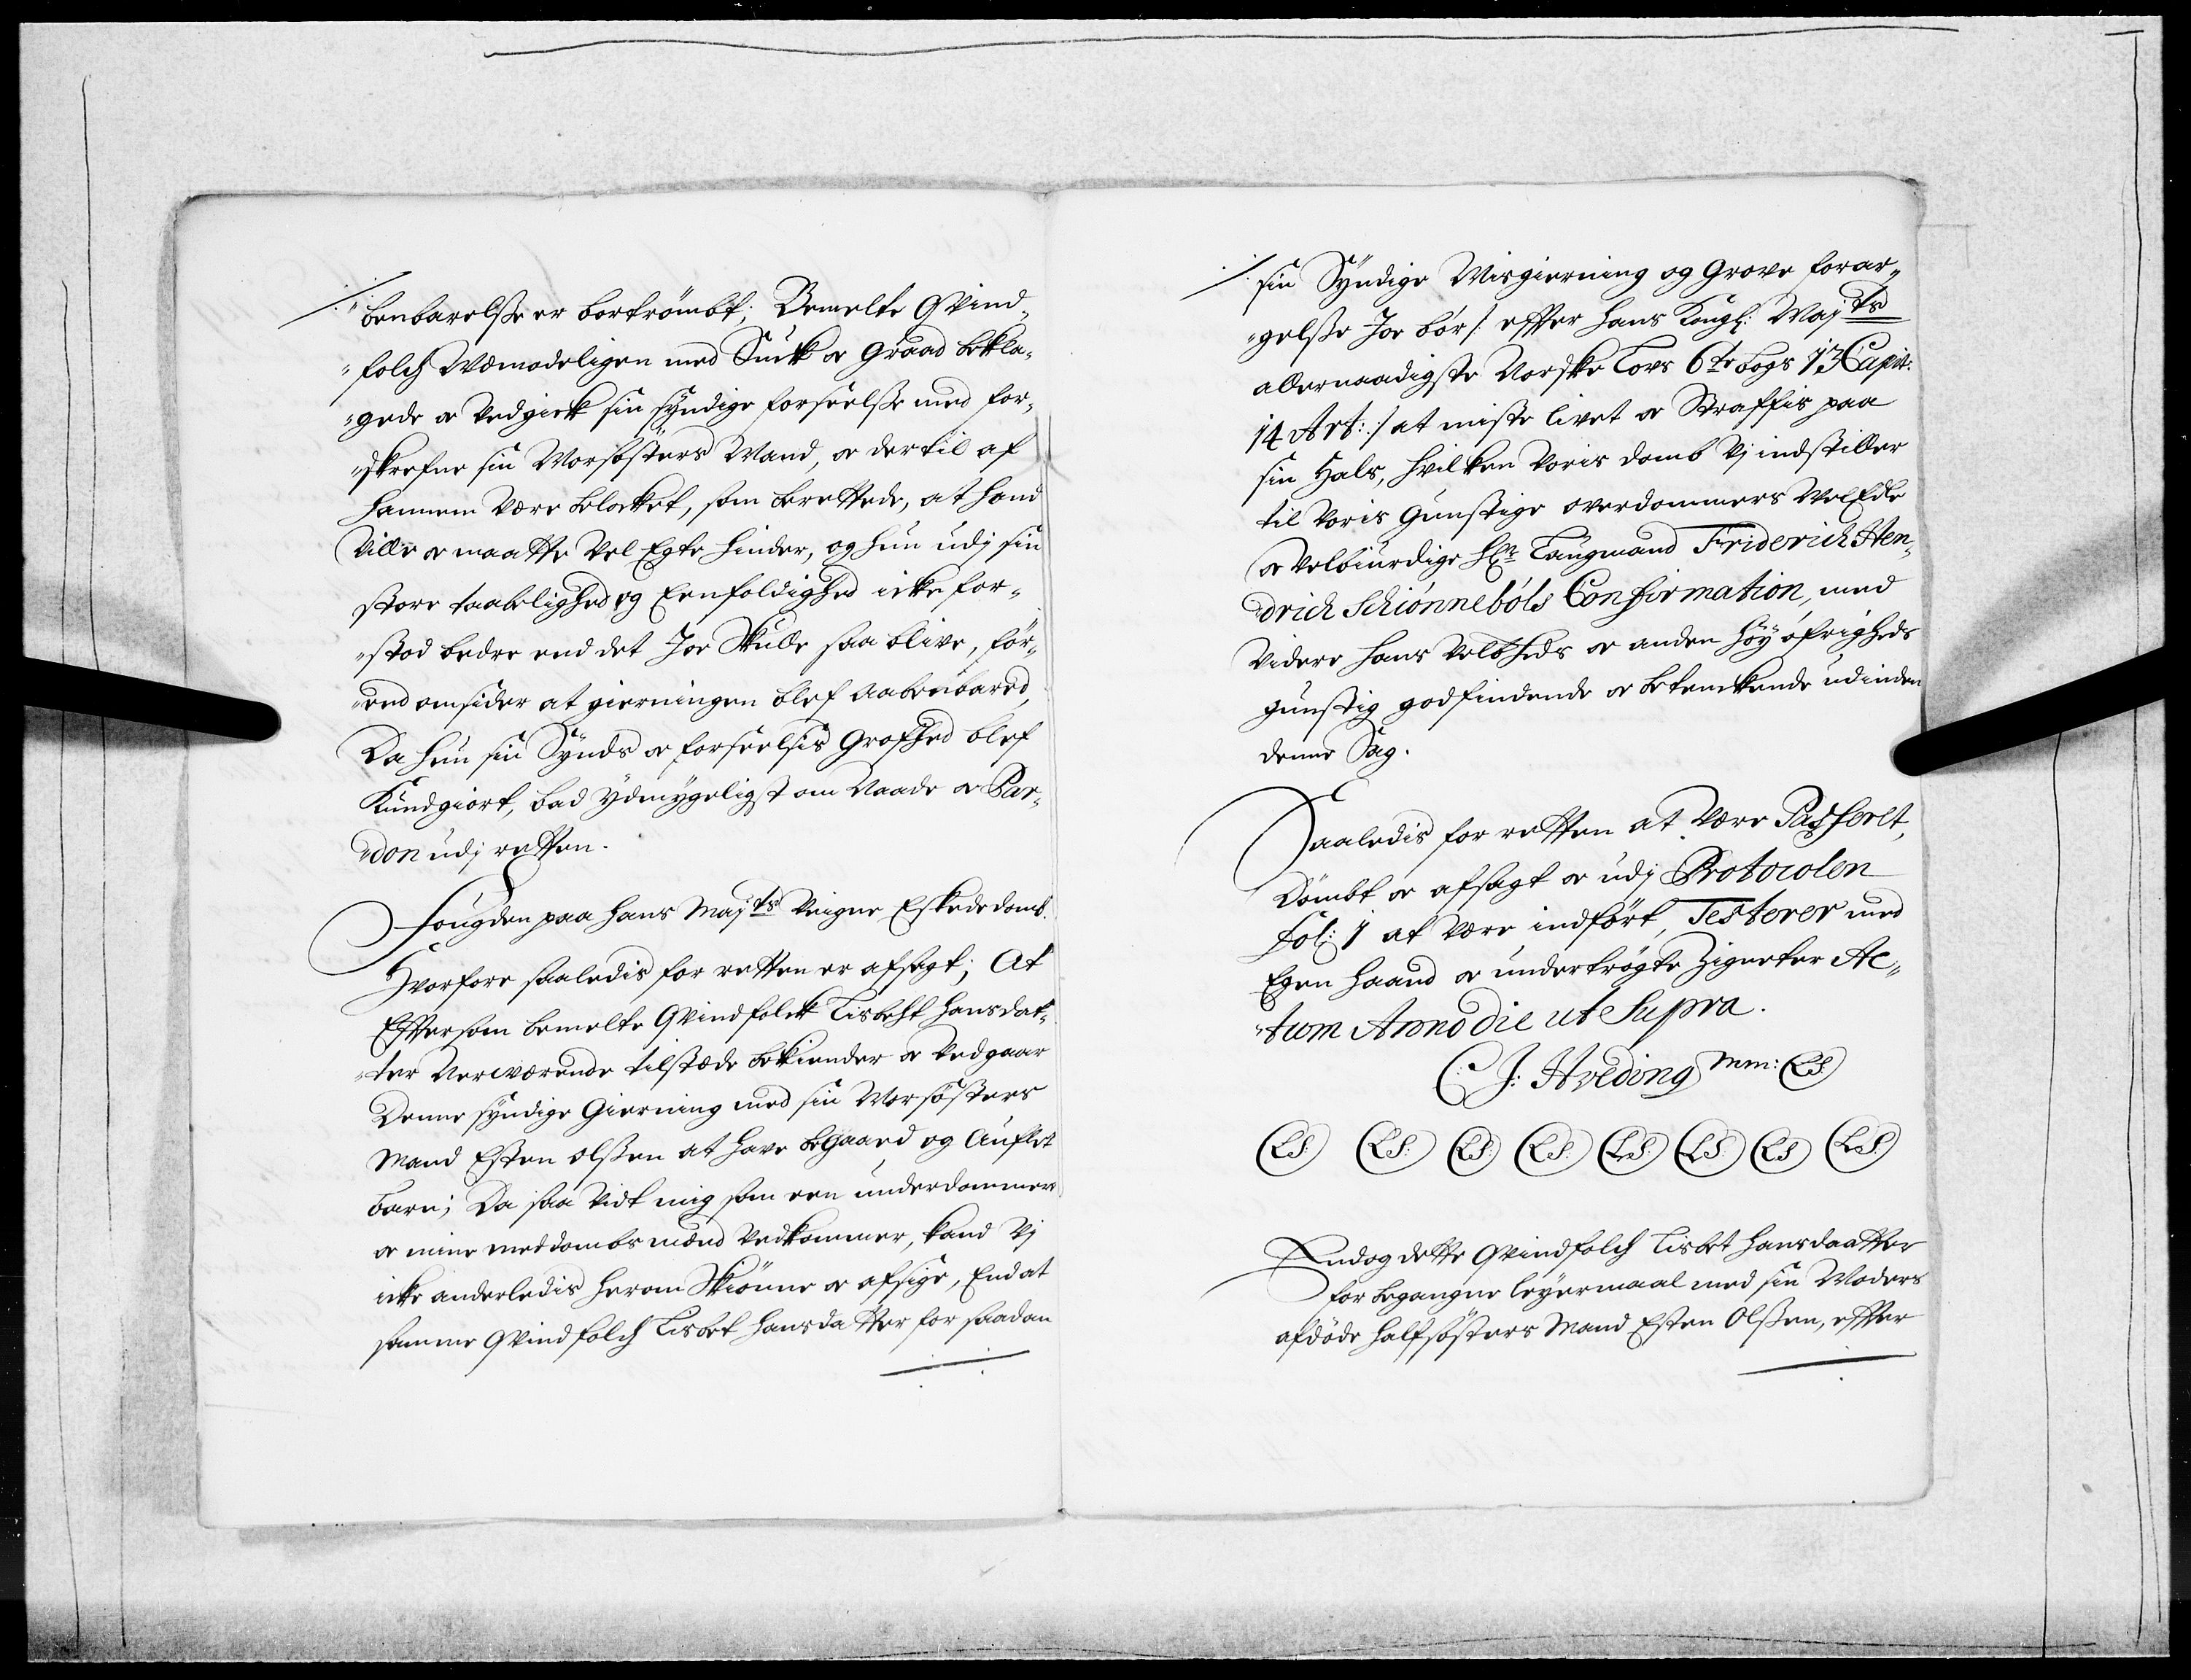 benbarelsße er bortrömbt; Bemelte Qvind-
folch Wemodeligen med Suck oc Graad bekla-
gede oc Vedgick sin syndige forseelsße med for-
skrefne sin Morsösters Mand, oc dertil af
hannem være Elocket, som berettede, at hand
ville oc maatte vel Egte hinder, og hun udj sin
store taabelighed og Eenfoldighed icke for-
stod bedre end det Joe Skulle saa blive, för-
end omsider at gierningen blef Aabenbared,
Da hun sin Synds oc forseelsis Grofhed blef
Kundgiort, bad ydmygeligst om Naade oc Par-
don udj retten.
Fougden paa hans Maj:ts Veigne Eskede domb.
Hvorfore saaledis for retten er afsagt; At
Eftersom bemelte Qvindfolck Lisbeht Hansdat-
ter Nerværende tilstæde bekiender oc Vedgaar
Denne syndige Gierning med sin Morsösters
Mand Esten Olsßen at have begaaed og Auflet
barn; Da saa vidt mig som een underdommere
oc mine meddombsmænd Vedkommer, kand Vj
icke anderledis herom Skiönne oc afsige, End at
samme Qvindfolch Lisbet Hansdatter for saadan
sin Syndige Misgierning og Grove forar-
gelsße Joe bör /: effter Hans Kongl: Maj:ts
allernaadigste Norske Lovs 6te bogs 13 Capit:
14 Art: :/ at miste livet oc Straffis paa
sin Hals, hvilken Voris domb Vj indstiller
til Voris Gunstige overdommers WelEdle
oc Velbiurdige Hr: Laugmand Friderich Hen-
drich Schiönneböls Confirmation, med
Videre hans Velbheds oc anden höy öfrigheds
gunstig godfindende oc betenckende udinden
denne Sag.
Saaledis for retten at være Passerlt,
Dömbt oc afsagt oc udj Protocolen
fol: 1 at være indfört, Testerer med
Egen Haand oc undertrögte Zigneter Ac-
tum Anno die ut Supra.
C: J: Hveding mm: LS:
LS: LS: LS: LS: LS: LS: LS LS:
Endog dette Qvindfolch Lisbet Hansdaatter
for begangne leyermaal med sin Moders
afdöde halfsösters Mand Esten Olsßen, effter